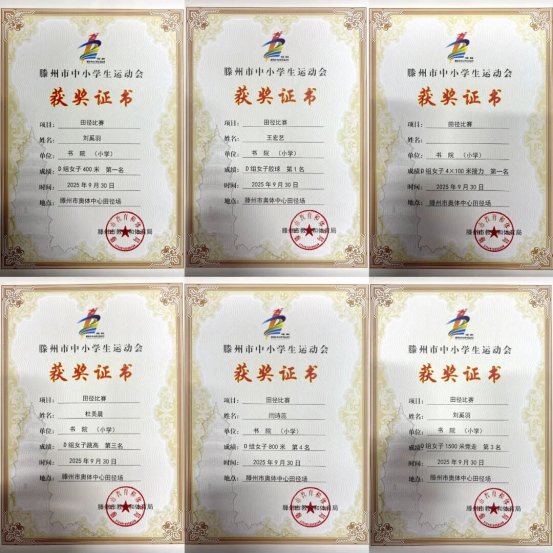 滕州市中小学生运动会
获奖证书
项目: 田径比赛
姓名: 刘奚羽
单位: 书 院 (小学)
成绩: D 组女子 400 米 第一名
时间: 2025 年 9 月 30 日
地点: 滕州市奥体中心田径场
滕州市教育和体育局
滕州市中小学生运动会
获奖证书
项目: 田径比赛
姓名: 王宏艺
单位: 书 院 (小学)
成绩: D 组女子胶球 第 1 名
时间: 2025 年 9 月 30 日
地点: 滕州市奥体中心田径场
滕州市教育和体育局
滕州市中小学生运动会
获奖证书
项目: 田径比赛
姓名:
单位: 书 院 (小学)
成绩: D 组女子 4×100 米接力 第一名
时间: 2025 年 9 月 30 日
地点: 滕州市奥体中心田径场
滕州市教育和体育局
滕州市中小学生运动会
获奖证书
项目: 田径比赛
姓名: 杜美晨
单位: 书 院 (小学)
成绩: D 组女子跳高 第三名
时间: 2025 年 9 月 30 日
地点: 滕州市奥体中心田径场
滕州市教育和体育局
滕州市中小学生运动会
获奖证书
项目: 田径比赛
姓名: 闫诗蕊
单位: 书 院 (小学)
成绩: D 组女子 800 米 第 4 名
时间: 2025 年 9 月 30 日
地点: 滕州市奥体中心田径场
滕州市教育和体育局
滕州市中小学生运动会
获奖证书
项目: 田径比赛
姓名: 刘奚羽
单位: 书 院 (小学)
成绩: D 组女子 1500 米竞走 第 3 名
时间: 2025 年 9 月 30 日
地点: 滕州市奥体中心田径场
滕州市教育和体育局